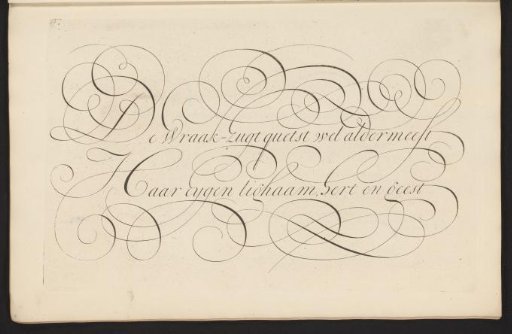 De Wraak-zugt quetst wel aldermeest
Haar eygen lighaam, hert en geest